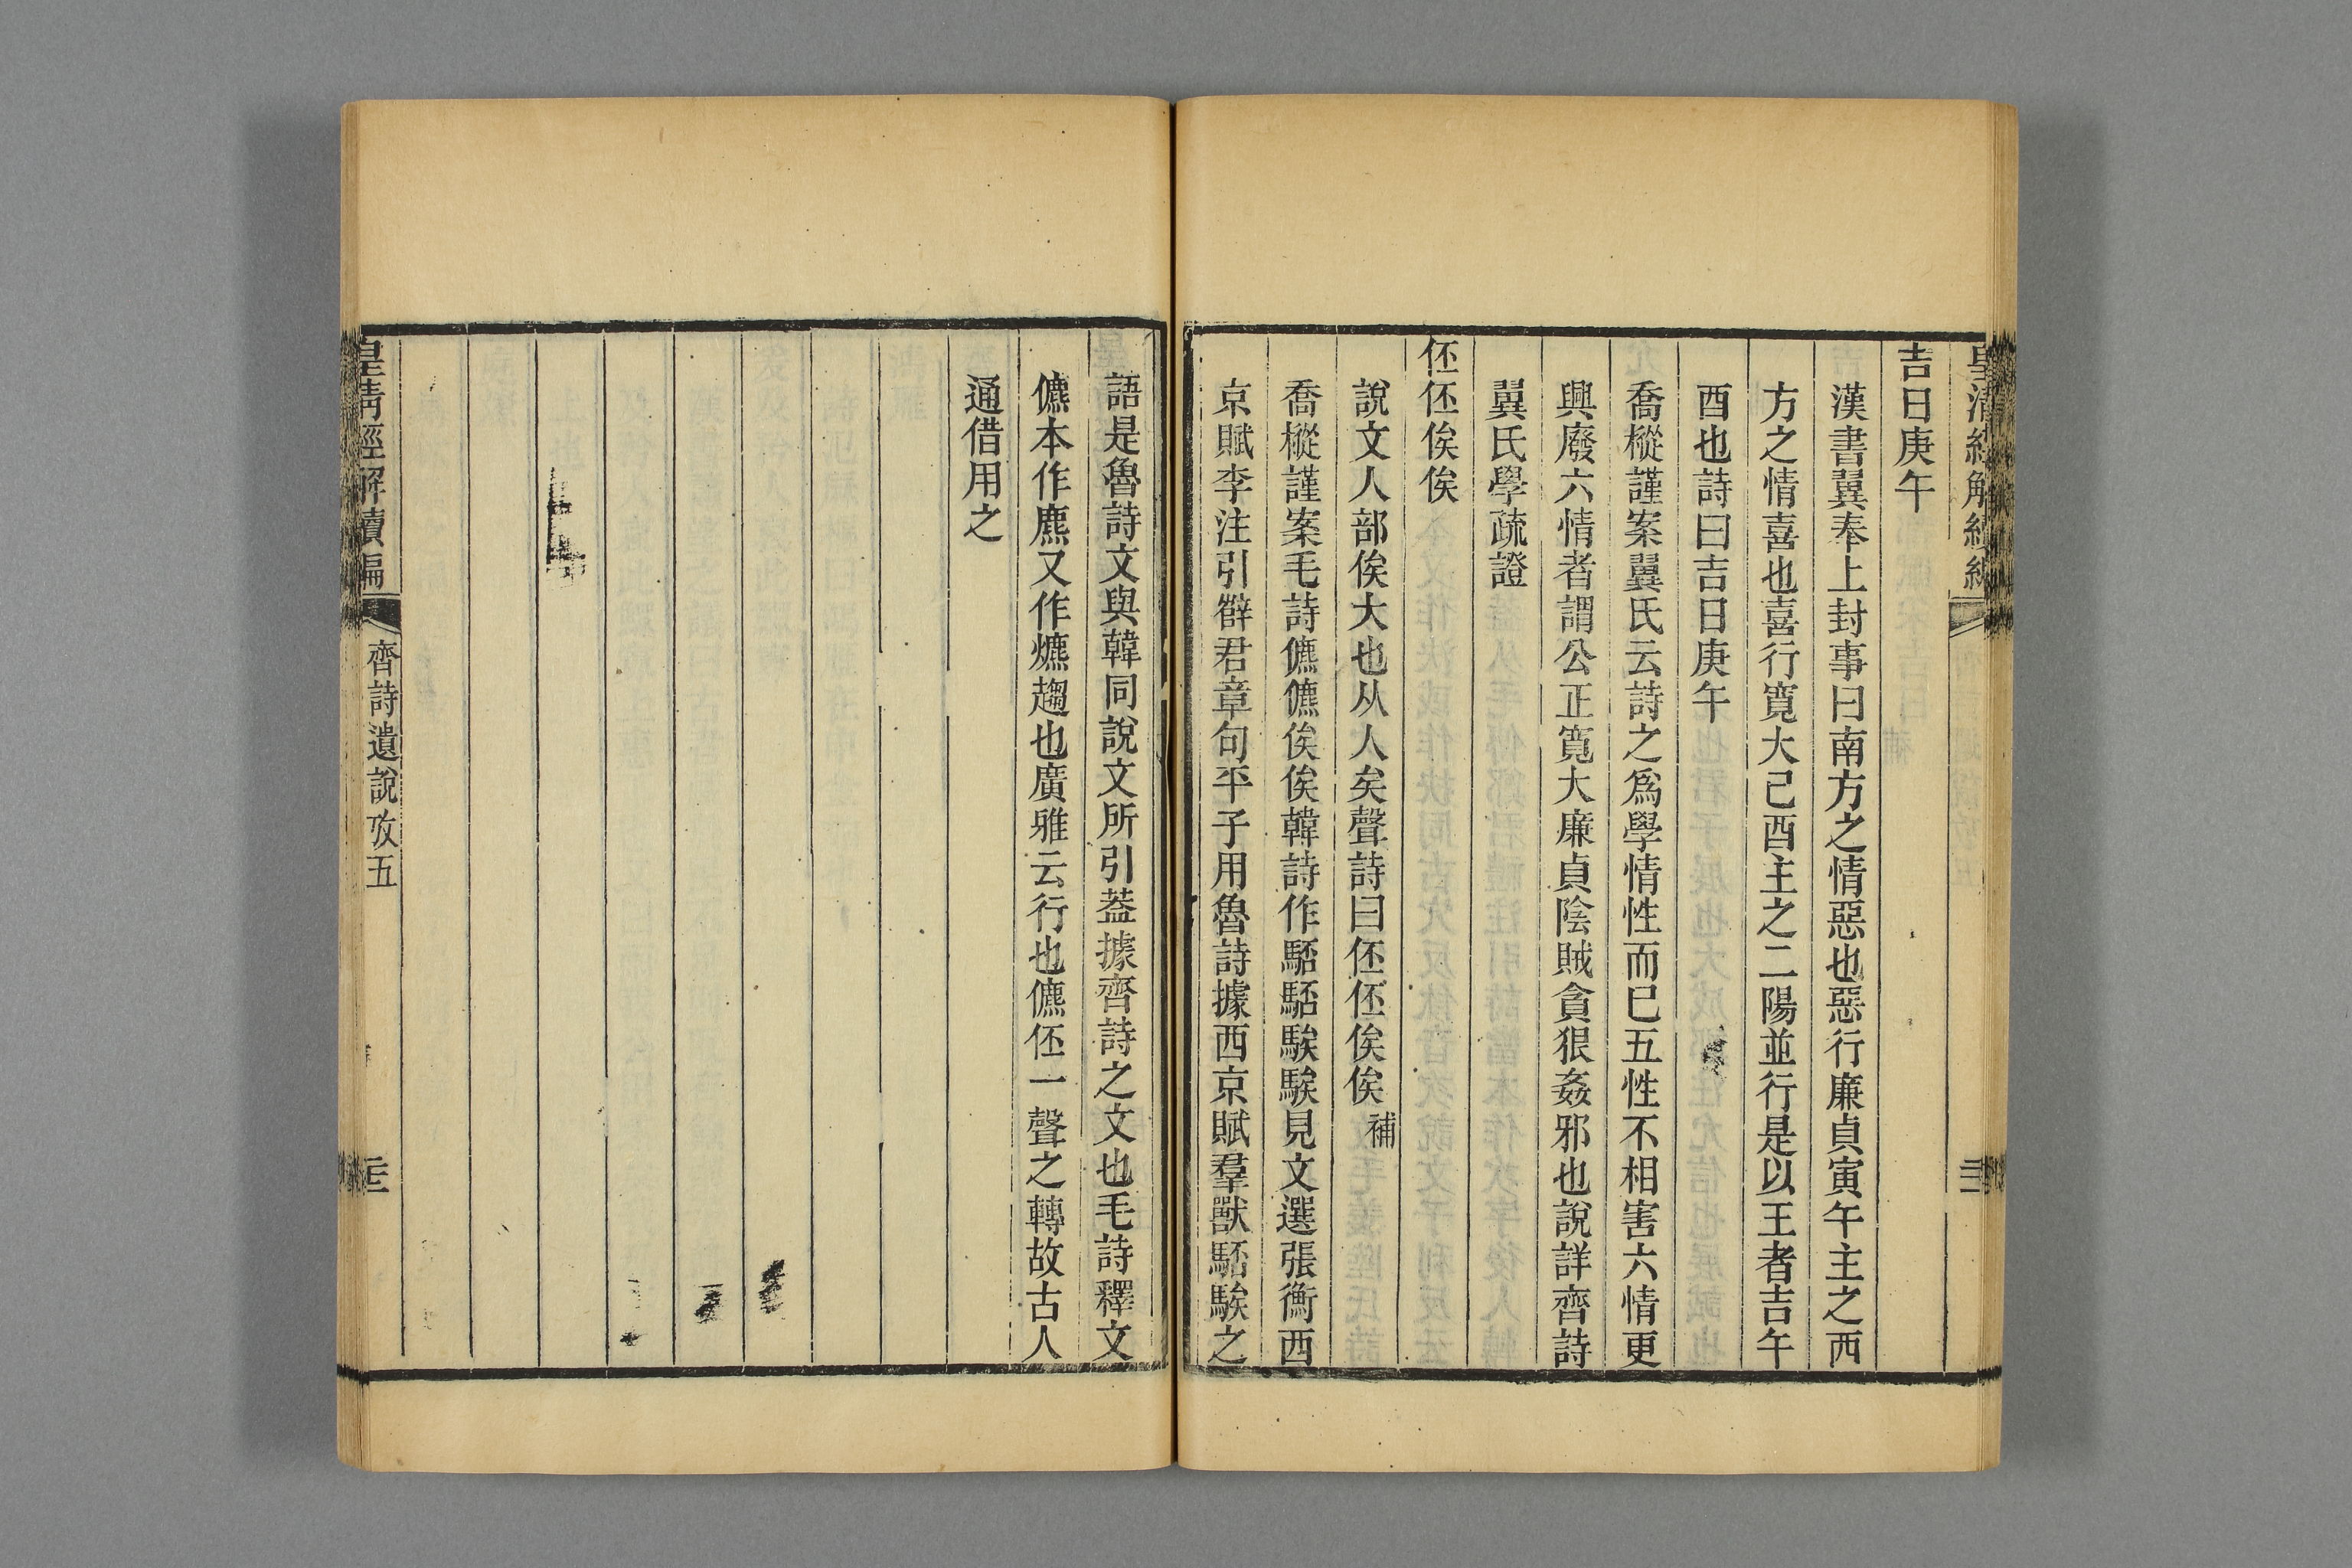 皇清經解續編
吉日庚午
漢書翼奉上封事曰南方之情惡也惡行廉貞寅午主之西
方之情喜也喜行寬大己酉主之二陽並行是以王者吉午
酉也詩曰吉日庚午
喬樅謹案翼氏云詩之爲學情性而已五性不相害六情更
興廢六情者謂公正寬大廉貞陰賊貪狠姦邪也說詳齊詩
翼氏學疏證
伾伾俟俟
說文人部俟大也从人矣聲詩曰伾伾俟俟 補
喬樅謹案毛詩儦儦俟俟韓詩作駓駓騃騃見文選張衡西
京賦李注引薛君章句平子用魯詩據西京賦羣獸駓騃之
語是魯詩文與韓同說文所引葢據齊詩之文也毛詩釋文
儦本作麃又作爊趨也廣雅云行也儦伾一聲之轉故古人
通借用之
皇清經解續編
齊詩遺說攷五